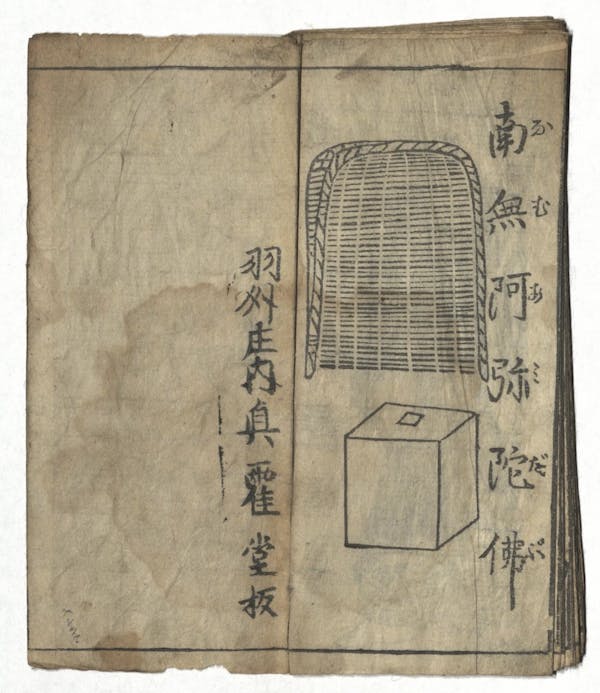 南無阿弥陀佛
なむあミだぶつ
羽州庄内真霍堂板